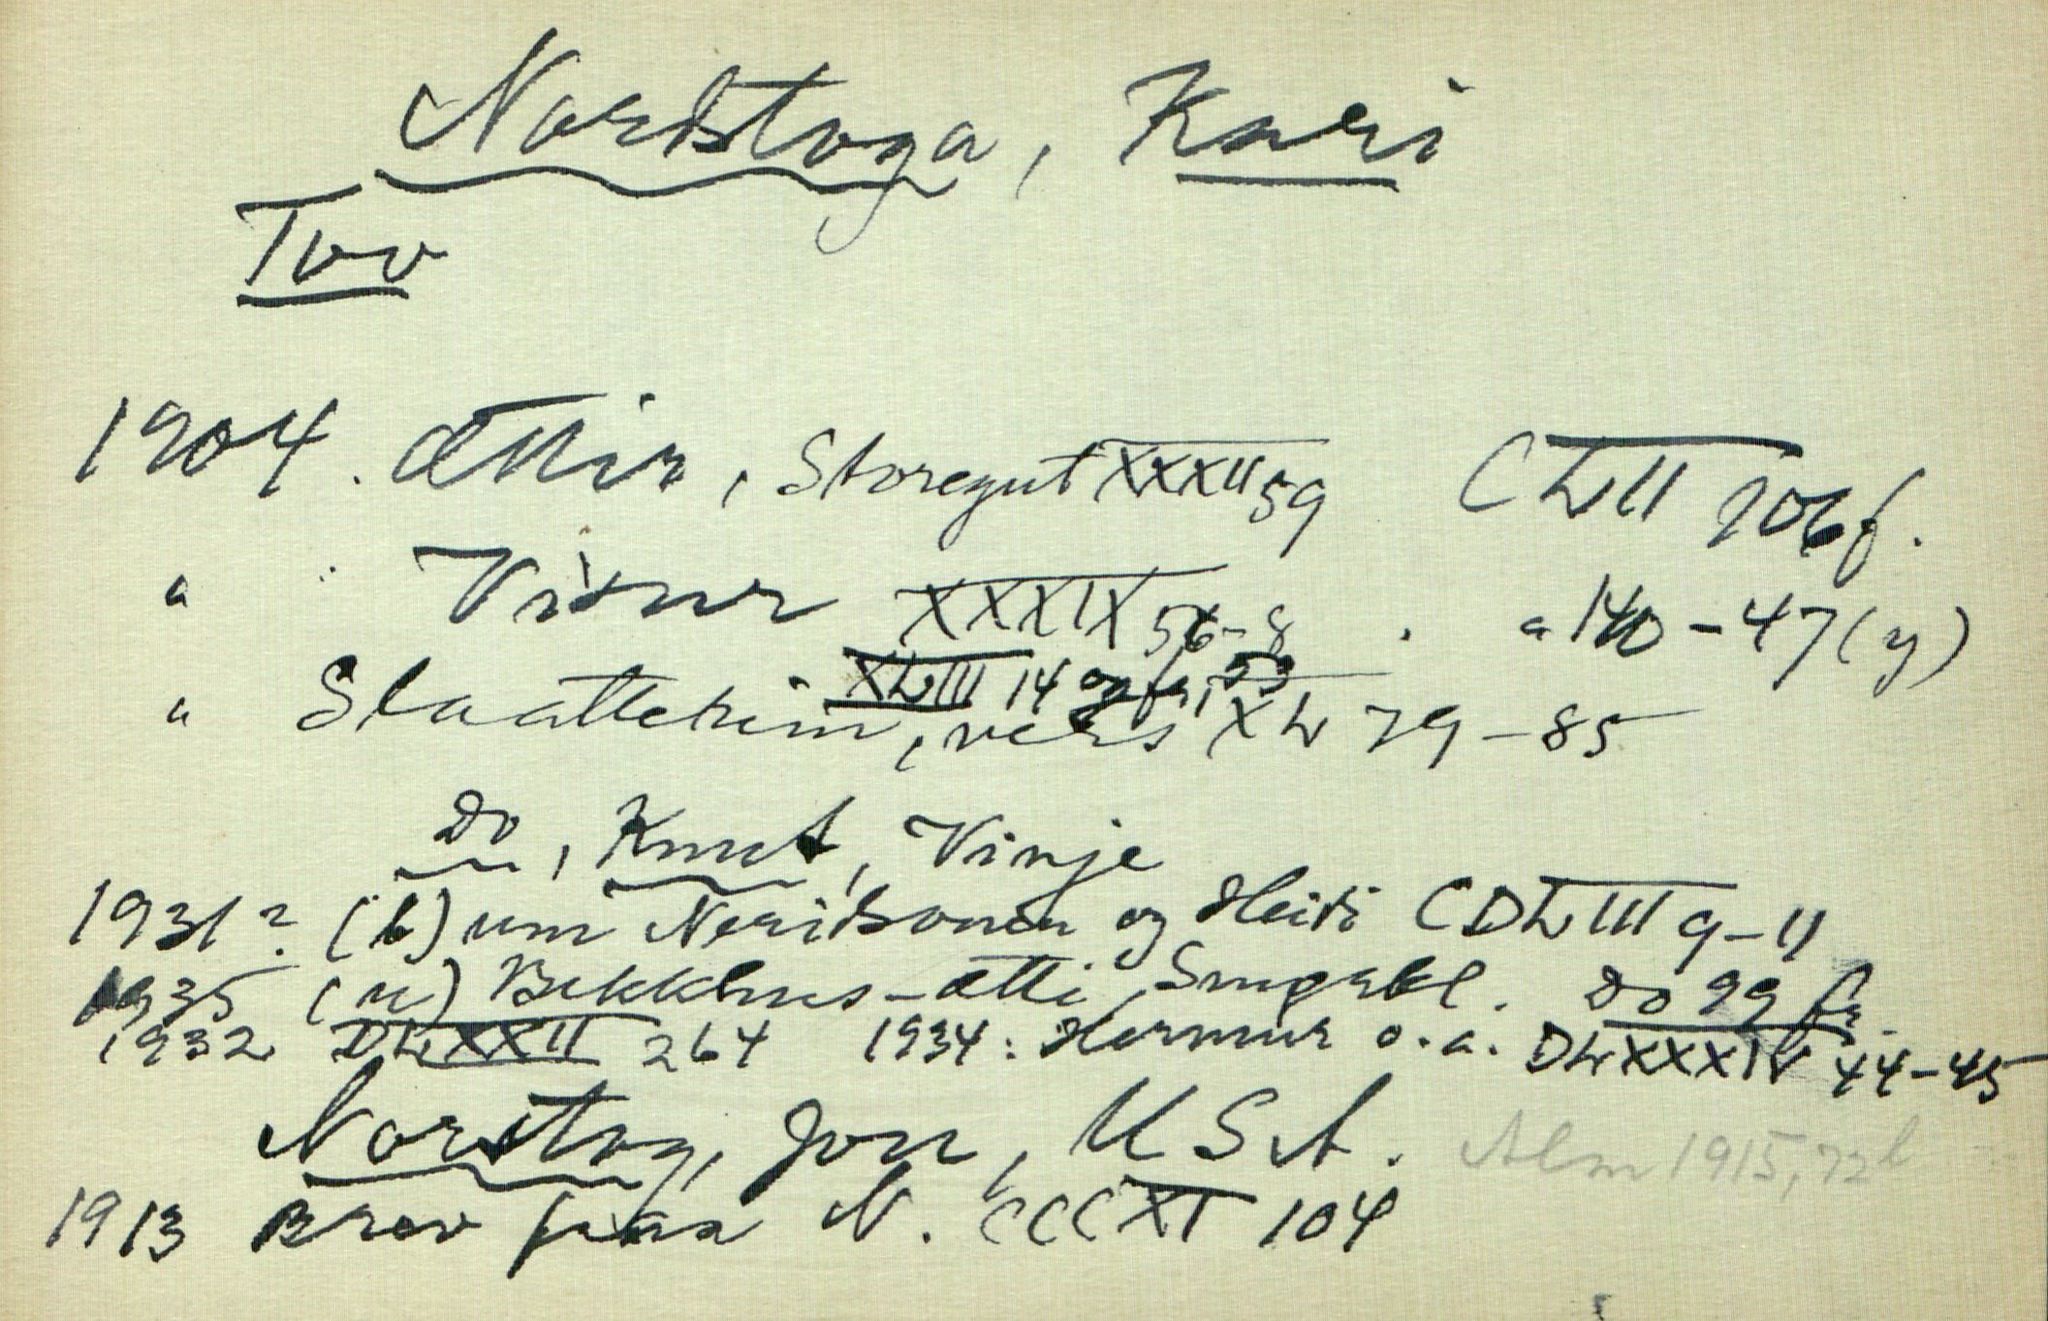 Nordstoga, Kari
Tov
1904. Ættir, Storegut XXXII 59 CLII 106 f.
" Visur XXXIX 56-8 . " 140-47 (y)
XLIII 14 og fr, 53
" Slaatterim, vers XL 79-85
Do, Knut, Vinje
1931? (b) um Neridsonen og Heiti CDLIII 9-11
1935 (u) Bekkhus-ætti, Do 99 fr.
1932 DLXXII 264 1934: Hermur o.a. DLXXXIV 44-45
Norstog, Jon, USA. Alm 1915, 72 b
1913 Brev fraa N. CCCXI 104